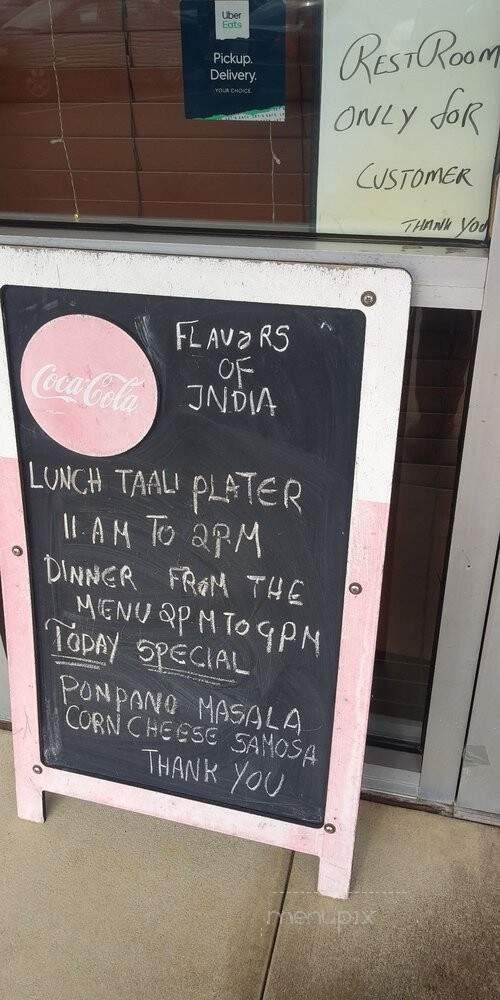 Uber
Eats
Pickup.
Delivery.
YOUR CHOICE.
RESTROOM
ONLY FOR
CUSTOMER
THANK YOU
Coca-Cola
FLAVORS
OF
INDIA
LUNCH TAALI PLATER
11 AM TO 2PM
DINNER FROM THE
MENU 2PM TO 9PM
TODAY SPECIAL
PONPANO MASALA
CORN CHEESE SAMOSA
THANK YOU
menupix